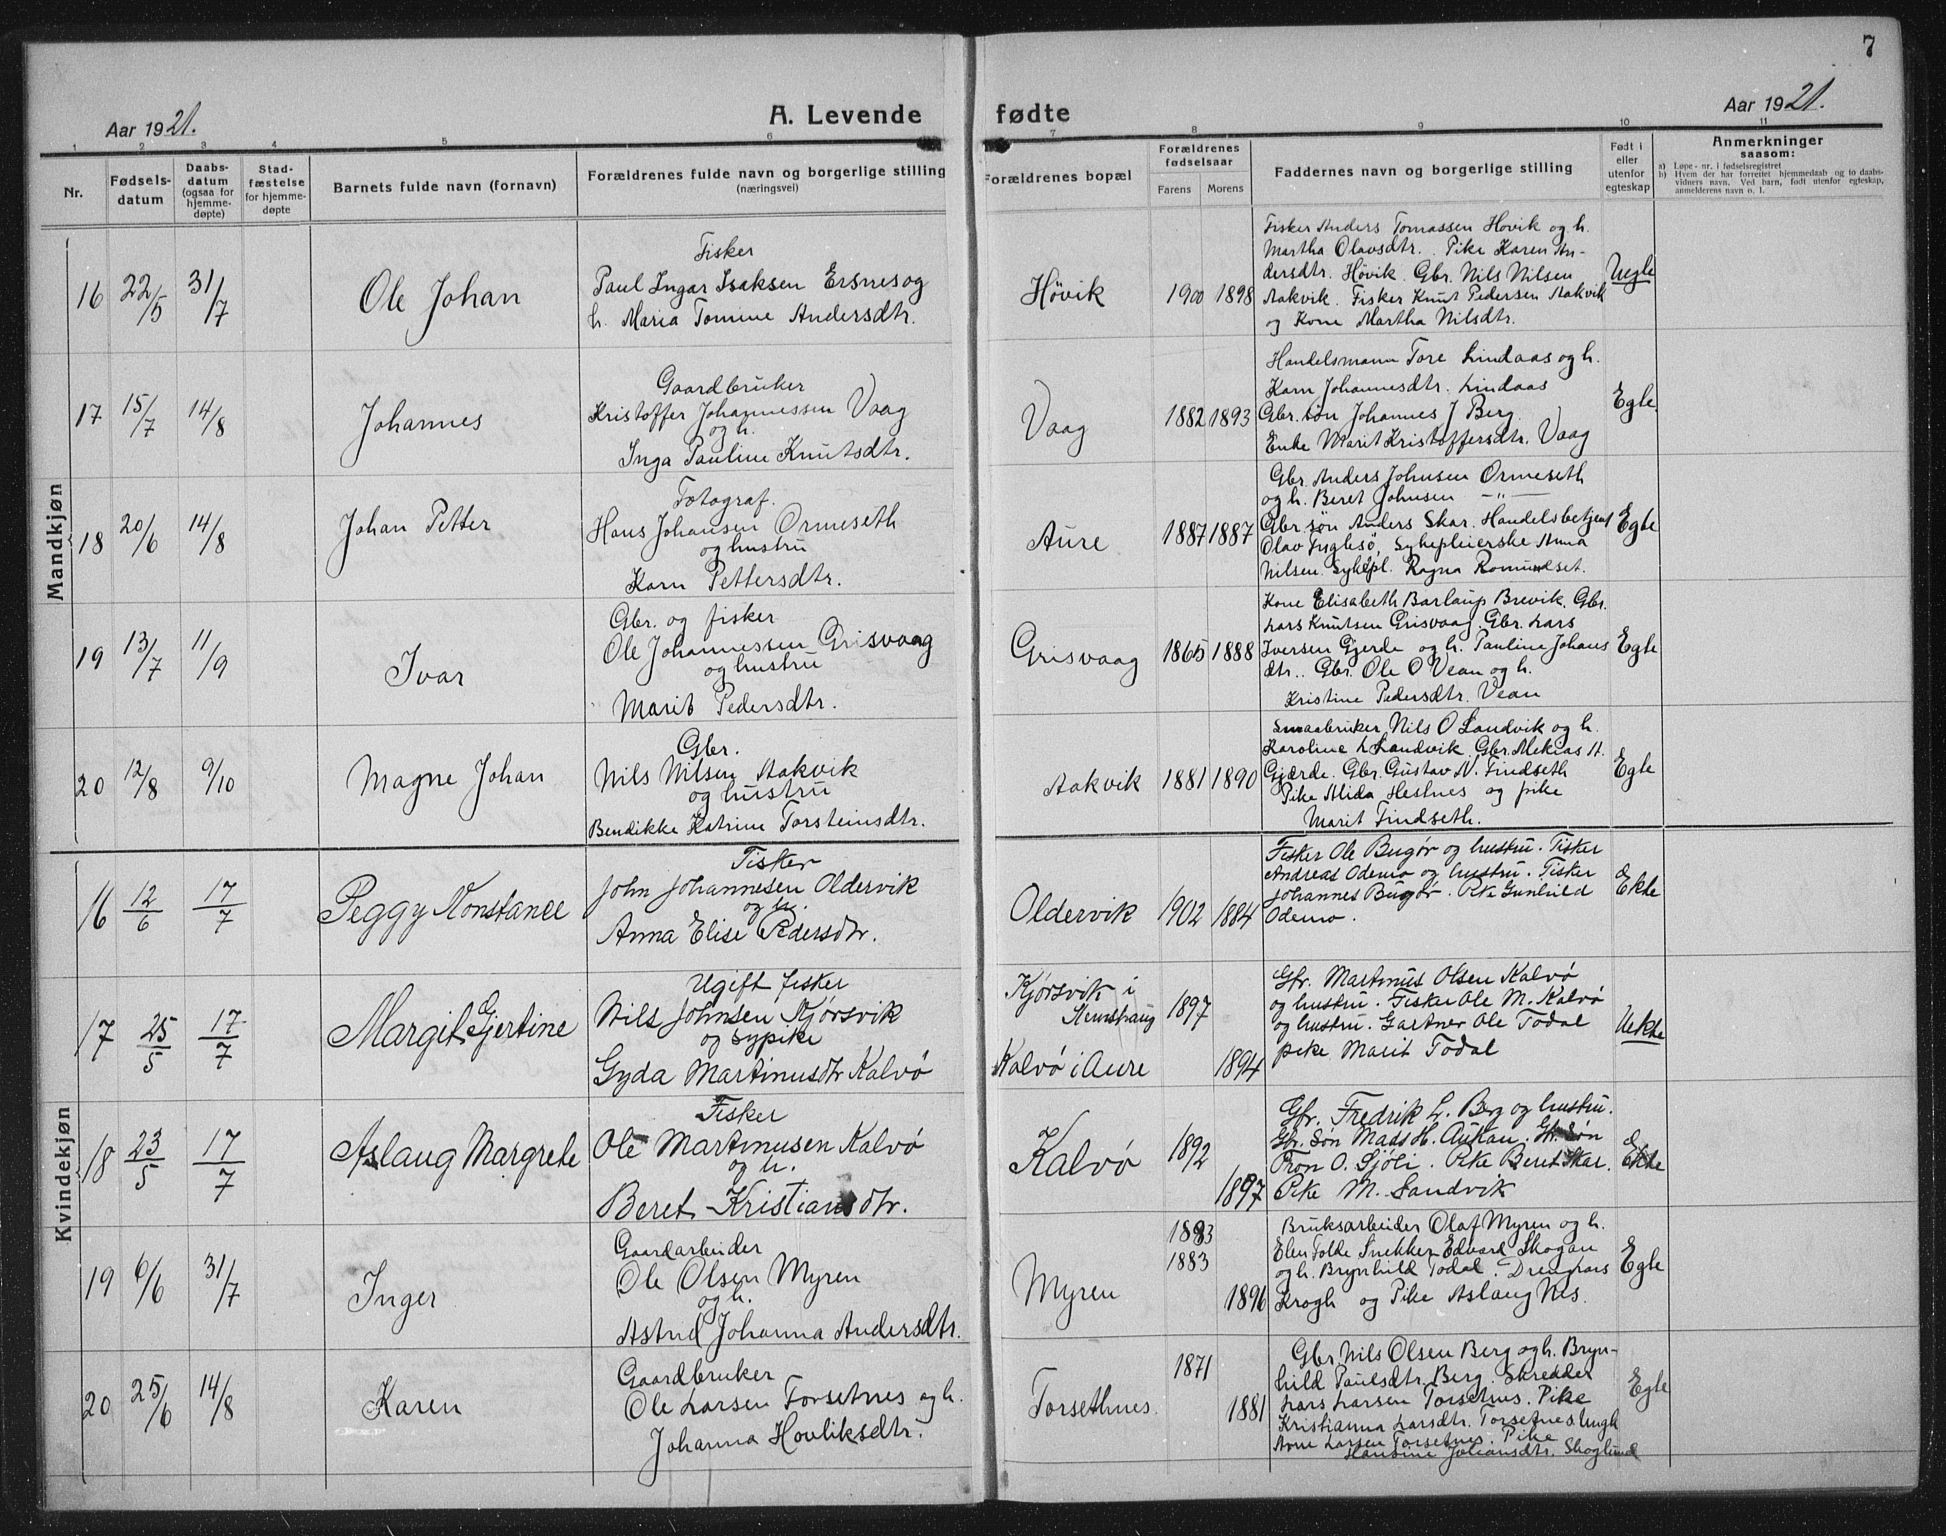 7
Aar 1921.
A. Levende fødte
Aar 1921.
1 2 3 4 5 6 7 8 9 10 11
Nr.
Fødsels-
datum
Daabs-
datum
(ogsaa for
hjemme-
døpte)
Stad-
fæstelse
for hjemme-
døpte
Barnets fulde navn (fornavn)
Forældrenes fulde navn og borgerlige stilling
(næringsvei)
Forældrenes bopæl
Forældrenes
fødselsaar
Farens Morens
Faddernes navn og borgerlige stilling
Født i
eller
utenfor
egteskap
Anmerkninger
saasom:
a) Løpe-nr. i fødselsregistret
b) Hvem der har forrettet hjemmedaab og to daabs-
vidners navn. Ved barn, født utenfor egteskap,
anmelderens navn o. l.
Mandkjøn
16 22/5 31/7
Ole Johan
Fisker
Paul Ingar Isaksen Ersnes og
h. Maria Tomine Andersdtr.
Høvik
1900 1898
Fisker Anders Tomassen Hovik og h.
Martha Olavsdtr. Pike Karen An-
dersdtr. Høvik. Gbr. Nils Nilsen
Aakvik. Fisker Knut Pedersen Aakvik
og Kone Martha Nilsdtr.
Uegte
17 15/7 14/8
Johannes
Gaardbruker
Kristoffer Johannessen Vaag
og h.
Inga Pauline Knutsdtr.
Vaag
1882 1893
Handelsmann Tore Lindaas og h.
Karn Johannesdtr. Lindaas
Gbr. søn Johannes J Berg.
Enke Marit Kristoffersdtr. Vaag
Egte.
18 20/6 14/8
Johan Petter
Fotograf.
Hans Johansen Ormeseth
og hustru
Karn Pettersdtr.
Aure
1887 1887
Gbr. Anders Johnsen Ormeseth
og h. Beret Johnsen —"—
Gbr. søn Anders Skar. Handelsbetjent
Olav Fuglesø, Sykepleierske Anna
Nilsen. Sykepl. Ragna Romundset.
Egte
19 13/7 11/9
Ivar
Gbr. og fisker
Ole Johannessen Grisvaag
og hustru
Marit Pedersdtr.
Grisvaag
1865 1888
Kone Elisabeth Barlaup Brevik. Gbr.
Lars Knutsen Grisvaag. Gbr. Lars
Iversen Gjerde og h. Pauline Johans
dtr.. Gbr. Ole O Vean og h.
Kristine Pedersdtr. Vean
Egte
20 12/8 9/10
Magne Johan
Gbr.
Nils Nilsen Aakvik
og hustru
Bendikke Katrine Torsteinsdtr.
Aakvik
1881 1890
Smaabruker Nils O Sandvik og h.
Karoline L Sandvik. Gbr. Mekias H.
Gjærde. Gbr. Gustav N. Findseth
Pike Alida Hestnes og pike
Marit Findseth.
Egte
Kvindekjøn
16 12/6 17/7
Peggy Konstance
Fisker
John Johannesen Oldervik
og h.
Anna Elise Pedersdtr.
Oldervik
1902 1884
Fisker Ole Bugør og hustru. Fisker
Andreas Odemo og hustru. Fisker
Johannes Bugør. Pike Gunhild
Odemo.
Ekte
17 25/5 17/7
Margit Gjertine
Ugift fisker
Nils Johnsen Kjørsvik
og sypike
Gyda Martinusdtr Kalvø
Kjørsvik i
Kalvø i Aure
1897
1894
Gbr. Martinus Olsen Kalvø
og hustru. Fisker Ole M. Kalvø
og hustru. Gartner Ole Todal
pike Marit Todal
Uekte
18 23/5 17/7
Aslaug Margrete
Fisker
Ole Martinusen Kalvø
og h.
Beret Kristiansdtr.
Kalvø
1892
1897
Gbr. Fredrik L. Berg og hustru.
Gbr. søn Mads H. Aukan. Gbr. søn
Tron O. Sjøli. Pike Beret Skar.
Pike M. Sandvik
Ekte
19 6/6 31/7
Inger
Gaardarbeider
Ole Olsen Myren
og h.
Astrid Johanna Andersdtr.
Myren
1883
1883
1896
Bruksarbeider Olaf Myren og h.
Elen Tolde Snekker Edvard Skogan
og h. Brynhild Todal. Dreng Lars
Krogh og Pike Aslaug Nes.
Egte
20 25/6 14/8
Karen
Gaardbruker
Ole Larsen Torsetnes og h.
Johanna Hovliksdtr.
Torsethnes.
1871
1881
Gbr. Nils Olsen Berg og h. Bryn-
hild Paulsdtr. Berg. Skredder
Lars Larsen Torsetnes. Pike
Kristianna Larsdtr. Torsetnes Ungk
Arne Larsen Torsetnes. Pike
Hansine Johansdtr. Skoglund
Egte